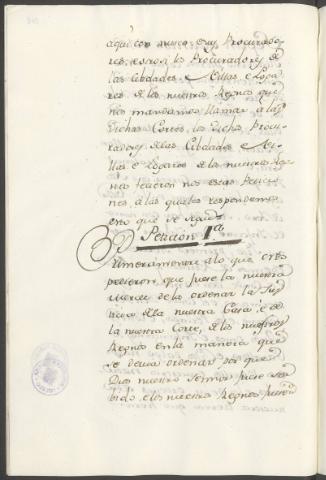 aqui con nusco é nros Procurado-
res, é otrosi los Procuradores de
las Cibdades é Villas é Loga-
res de los nuestros Regnos que
Nos mandamos llamar á las
dichas Cortes, los dichos Procu-
radores de las Cibdades é Vi-
llas é Logares de los nuestros Reg-
nos ficieron nos estas Peticio-
nes, á las quales respondemos
en lo que se sigue
Peticion 1ª
Primeramente á lo que nos
pedieron que fuese la nuestra
merced de la ordenar la Jus-
ticia de la nuestra Casa é de
la nuestra Corte, é de los nuestros
Regnos en la manera que
se devia ordenar por que
Dios nuestro Señor fuese ser-
bido é los nuestros Regnos